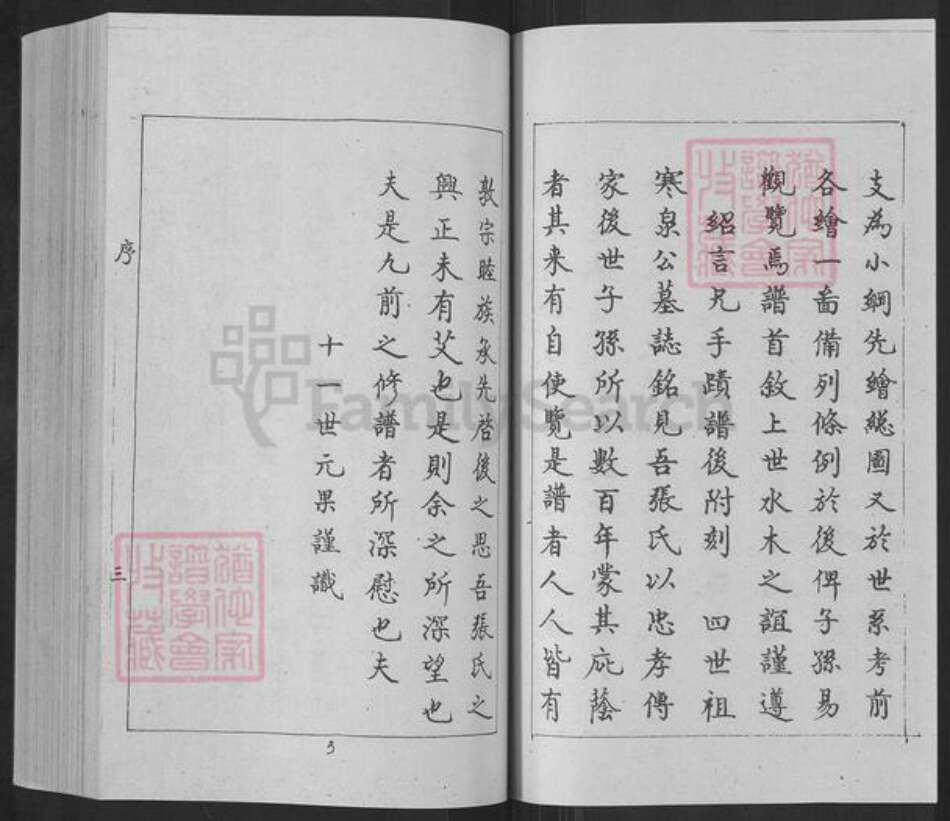 支為小綱先繪總圖又於世系考前
各繪一啚備列條例於後俾子孫易
觀覽焉譜首敘上世水木之誼謹遵
紹言兄手蹟譜後附刻 四世祖
寒泉公墓誌銘見吾張氏以忠孝傳
家後世子孫所以數百年蒙其庇蔭
者其来有自使覽是譜者人人皆有
敦宗睦族承先啓後之思吾張氏之
興正未有艾也是則余之所深望也
夫是九前之修譜者所深慰也夫
十一世元果謹識
序
三
3
FamilySearch
猶他家
譜學會
收藏
猶他家
譜學會
收藏